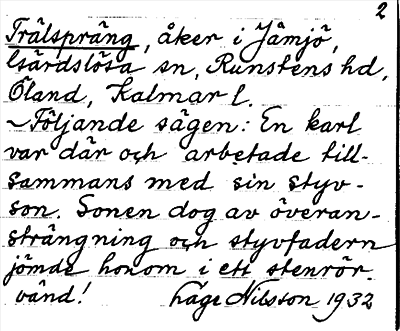 2
Trälspräng, åker i Jämjö,
Gärdslösa sn, Runstens hd,
Öland, Kalmar l.
~Följande sägen: En karl
var där och arbetade till-
sammans med sin styv-
son. Sonen dog av överan-
strängning och styvfadern
jömde honom i ett stenrör.
vänd! Håge Nilsson 1932